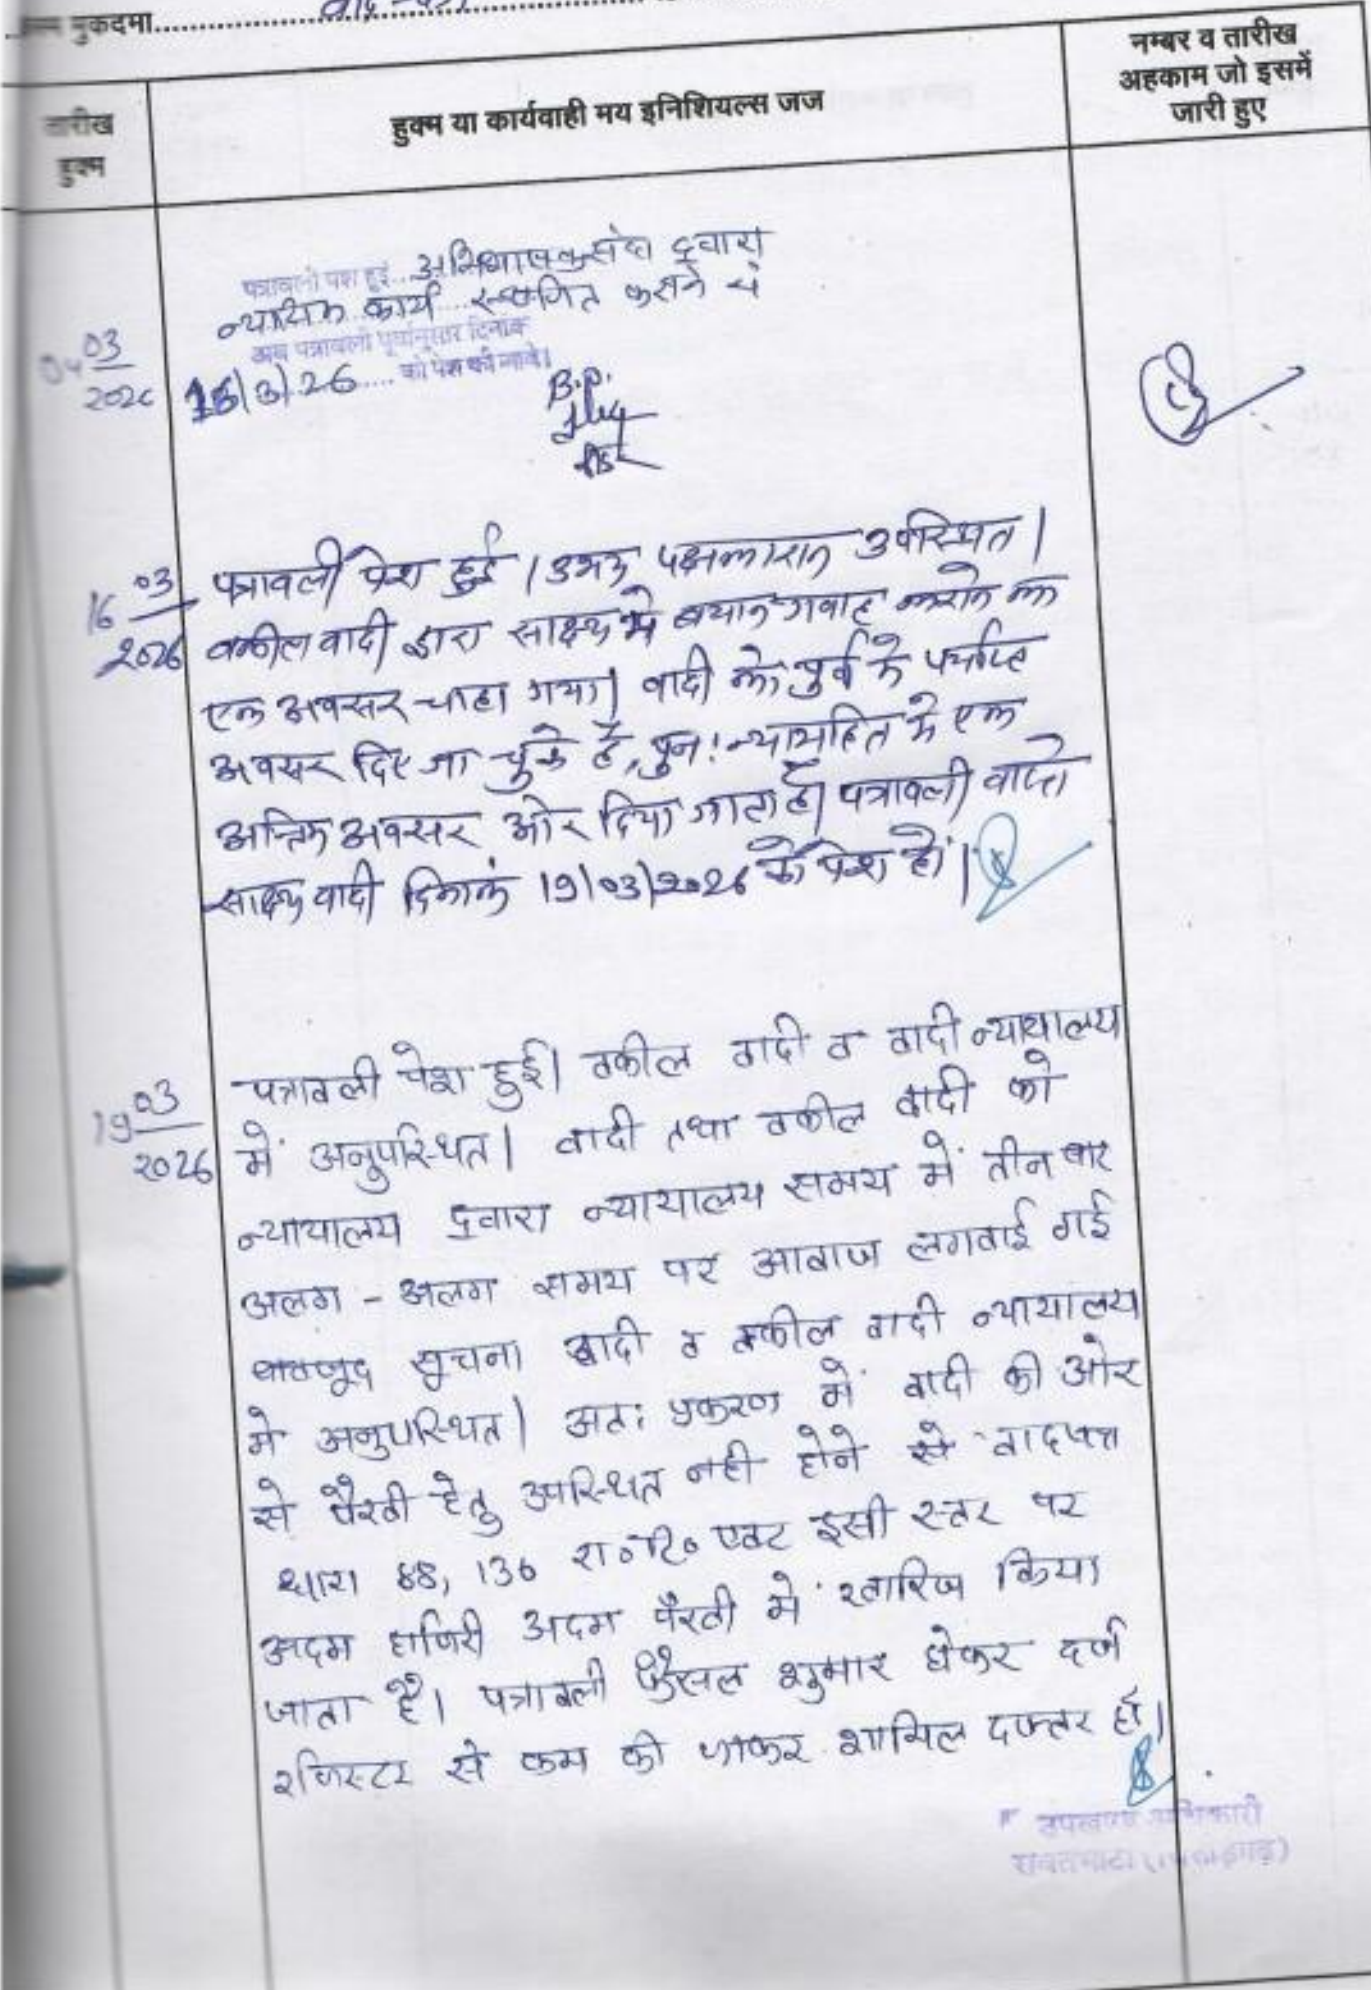 मुकदमा
वाद-पत्र
तारीख
हुक्म
हुक्म या कार्यवाही मय इनिशियल्स जज
नम्बर व तारीख
अहकाम जो इसमें
जारी हुए
पत्रावली पेश हुई अभिभाषक संघ द्वारा
न्यायिक कार्य स्थगित करने से
अब पत्रावली पूर्वानुसार दिनांक
16/3/26 को पेश की जावे।
04 03
2026
B.P.
16 03
2026
पत्रावली पेश हुई। उभय पक्षकारान उपस्थित।
वकील वादी द्वारा साक्ष्य में बयान गवाह कराने का
एक अवसर चाहा गया। वादी को पुर्व में पर्याप्त
अवसर दिए जा चुके है, पुन: न्यायहित में एक
अन्तिम अवसर ओर दिया जाता है। पत्रावली वास्ते
साक्ष्य वादी दिनांक 19/03/2026 को पेश हो।
19 03
2026
पत्रावली पेश हुई। वकील वादी व वादी न्यायालय
में अनुपस्थित। वादी तथा वकील वादी को
न्यायालय द्वारा न्यायालय समय में तीन बार
अलग - अलग समय पर आवाज लगवाई गई
बावजूद सूचना वादी व वकील वादी न्यायालय
में अनुपस्थित। अत: प्रकरण में वादी की ओर
से पैरवी हेतु उपस्थित नही होने से वादपत्र
धारा 88, 136 रा०टि० एक्ट इसी स्तर पर
अदम हाजिरी अदम पैरवी में खारिज किया
जाता है। पत्रावली फैसल शुमार होकर दर्ज
रजिस्टर से कम की जाकर शामिल दफ्तर हो।
उपखण्ड अधिकारी
रावतभाटा